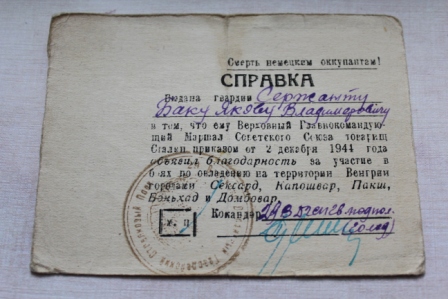 Смерть немецким оккупантам!
СПРАВКА
Выдана гвардии Сержанту
Баку Якову Владимировичу
в том, что ему Верховный Главнокомандую-
щий Маршал Советского Союза товарищ
Сталин приказом от 2 декабря 1944 года
объявил благодарность за участие в
боях по овладению на территории Венгрии
городами Сексард, Капошвар, Пакш,
Боньхад и Домбовар.
Командир